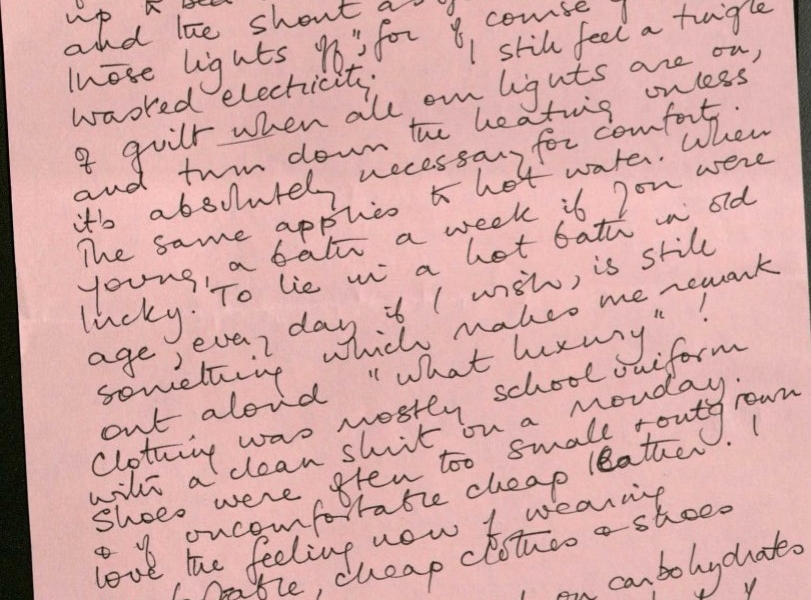 up to bed
and the shout
those lights off", for of course
wasted electricity. I still feel a twinge
of guilt when all our lights are on,
and turn down the heating unless
it's absolutely necessary for comfort.
The same applies to hot water. When
young, a bath a week if you were
lucky. To lie in a hot bath in old
age, every day if I wish, is still
something which makes me remark
out aloud "what luxury"!
Clothing was mostly school uniform
with a clean shirt on a Monday.
Shoes were often too small & outgrown
& of uncomfortable cheap leather. I
love the feeling now of wearing
cheap clothes & shoes
on carbohydrates